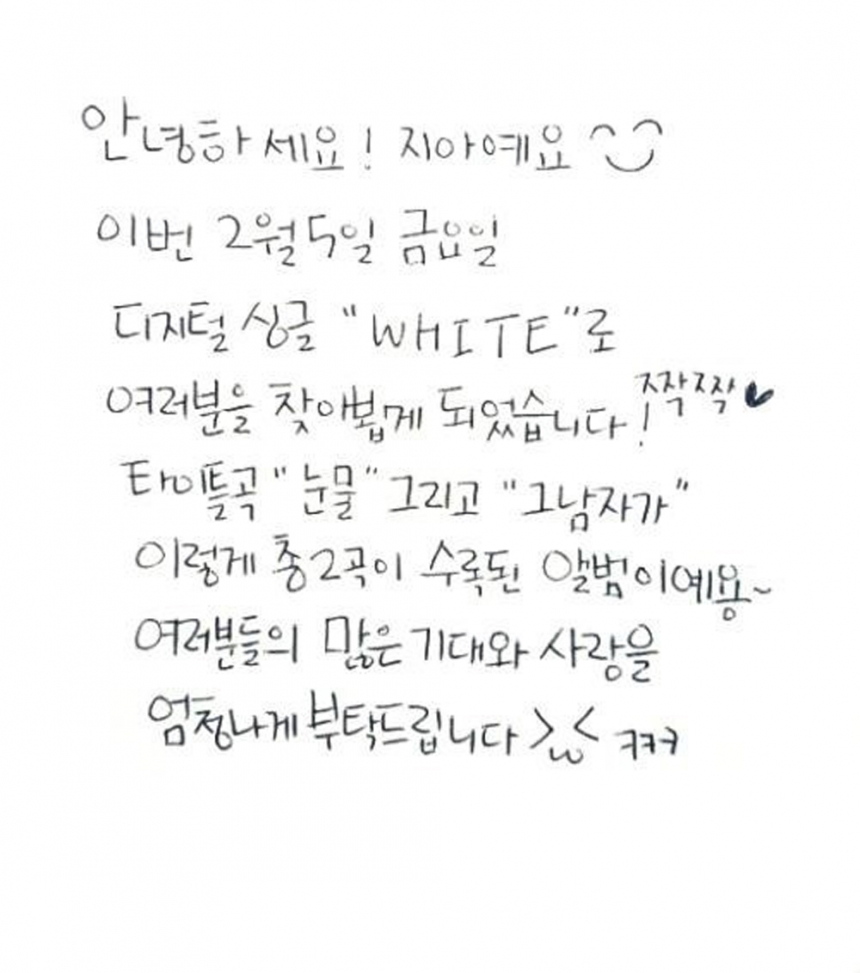 안녕하세요! 지아예요 ^‿^
이번 2월 5일 금요일
디지털 싱글 "WHITE"로
여러분을 찾아뵙게 되었습니다! 짝짝짝♥
타이틀곡 "눈물" 그리고 "그남자가"
이렇게 총 2곡이 수록된 앨범이예용~
여러분들의 많은 기대와 사랑을
엄청나게 부탁드립니다 >ω< ㅋㅋㅋ